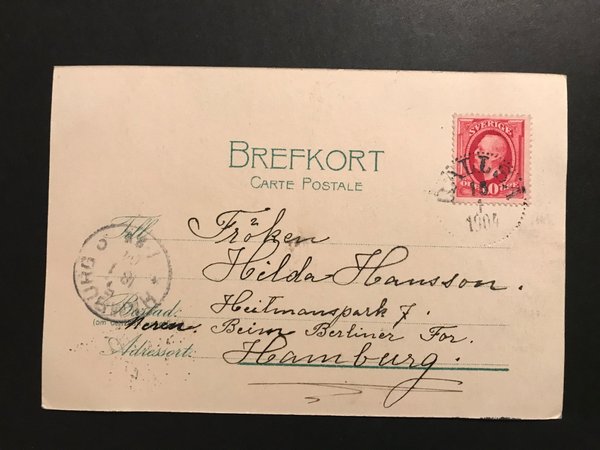 SVERIGE
10
BREFKORT
CARTE POSTALE
1904
Till
Fröken
Hilda Hansson.
HAMBURG
Bostad:
Heitmanspark 7.
(om
Beim Berliner For.
Adressort:
Hamburg.